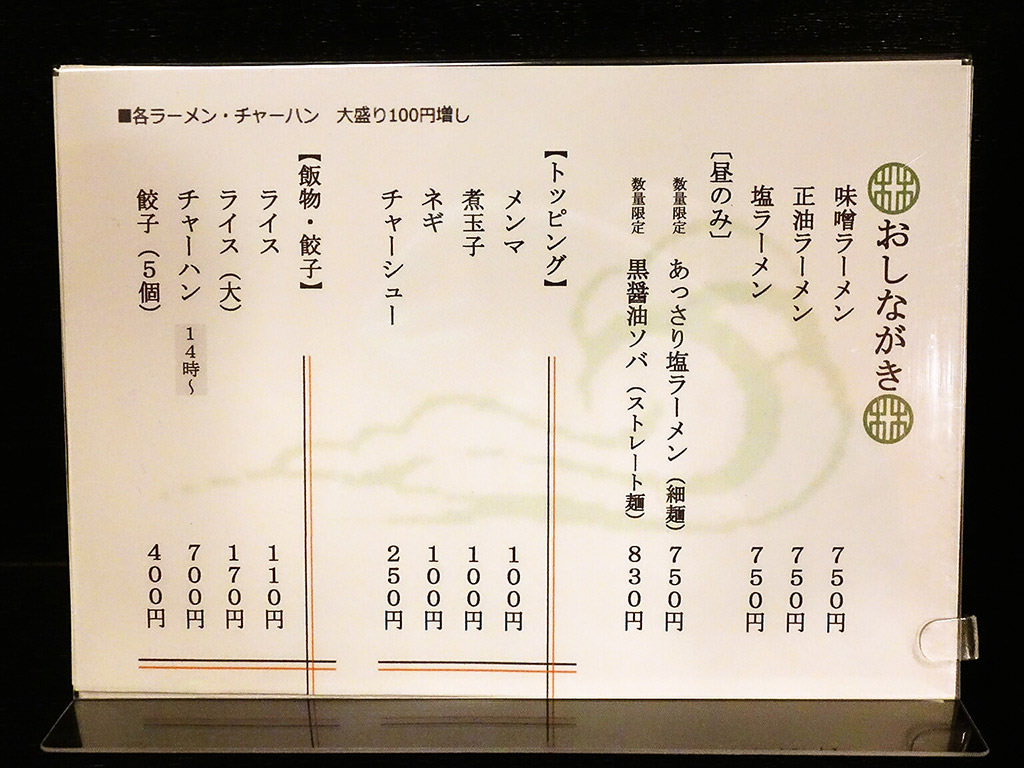 ■各ラーメン・チャーハン　大盛り100円増し
林 おしながき 林
味噌ラーメン 750円
正油ラーメン 750円
塩ラーメン 750円
［昼のみ］
数量限定 あっさり塩ラーメン（細麺） 750円
数量限定 黒醤油ソバ（ストレート麺） 830円
【トッピング】
メンマ 100円
煮玉子 100円
ネギ 100円
チャーシュー 250円
【飯物・餃子】
ライス 110円
ライス（大） 170円
チャーハン 14時～ 700円
餃子（5個） 400円